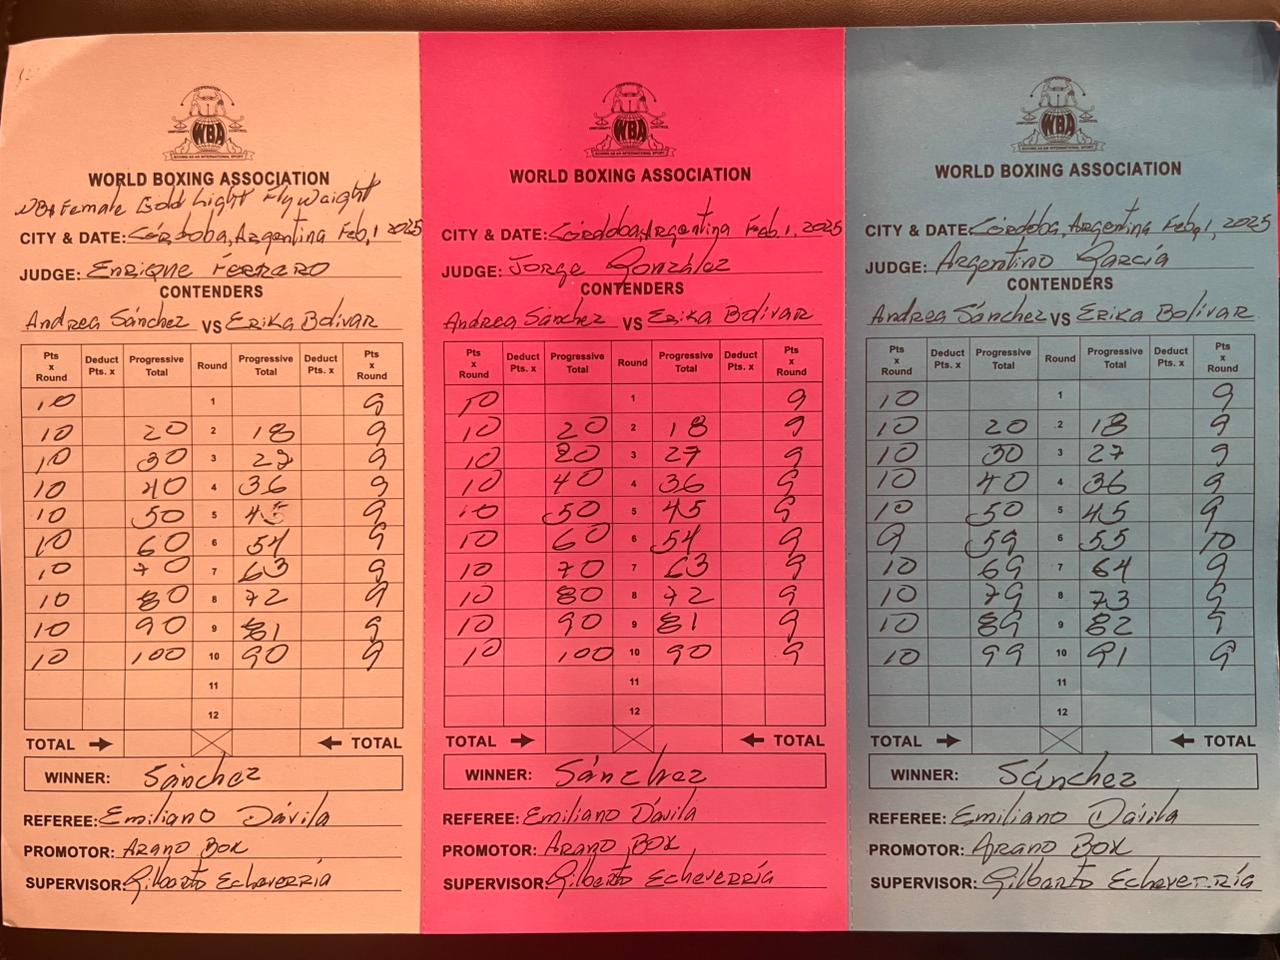 WBA
WORLD BOXING ASSOCIATION
WBA Female Gold Light Flywaight
CITY & DATE: Córdoba, Argentina Feb, 1 2025
JUDGE: Enrique Ferraro
CONTENDERS
Andrea Sánchez VS Erika Bolívar
Pts x Round Deduct Pts. x Progressive Total Round Progressive Total Deduct Pts. x Pts x Round
10 1 9
10 20 2 18 9
10 30 3 27 9
10 40 4 36 9
10 50 5 45 9
10 60 6 54 9
10 70 7 63 9
10 80 8 72 9
10 90 9 81 9
10 100 10 90 9
11
12
TOTAL TOTAL
WINNER: Sánchez
REFEREE: Emiliano Dávila
PROMOTOR: Arano Box
SUPERVISOR: Gilberto Echeverría
WBA
WORLD BOXING ASSOCIATION
CITY & DATE: Córdoba, Argentina Feb. 1, 2025
JUDGE: Jorge González
CONTENDERS
Andrea Sánchez VS Erika Bolívar
Pts x Round Deduct Pts. x Progressive Total Round Progressive Total Deduct Pts. x Pts x Round
10 1 9
10 20 2 18 9
10 30 3 27 9
10 40 4 36 9
10 50 5 45 9
10 60 6 54 9
10 70 7 63 9
10 80 8 72 9
10 90 9 81 9
10 100 10 90 9
11
12
TOTAL TOTAL
WINNER: Sánchez
REFEREE: Emiliano Dávila
PROMOTOR: Arano Box
SUPERVISOR: Gilberto Echeverría
WBA
WORLD BOXING ASSOCIATION
CITY & DATE: Córdoba, Argentina Feb, 1, 2025
JUDGE: Argentino García
CONTENDERS
Andrea Sánchez VS Erika Bolívar
Pts x Round Deduct Pts. x Progressive Total Round Progressive Total Deduct Pts. x Pts x Round
10 1 9
10 20 2 18 9
10 30 3 27 9
10 40 4 36 9
10 50 5 45 9
9 59 6 55 10
10 69 7 64 9
10 79 8 73 9
10 89 9 82 9
10 99 10 91 9
11
12
TOTAL TOTAL
WINNER: Sánchez
REFEREE: Emiliano Dávila
PROMOTOR: Arano Box
SUPERVISOR: Gilberto Echeverría